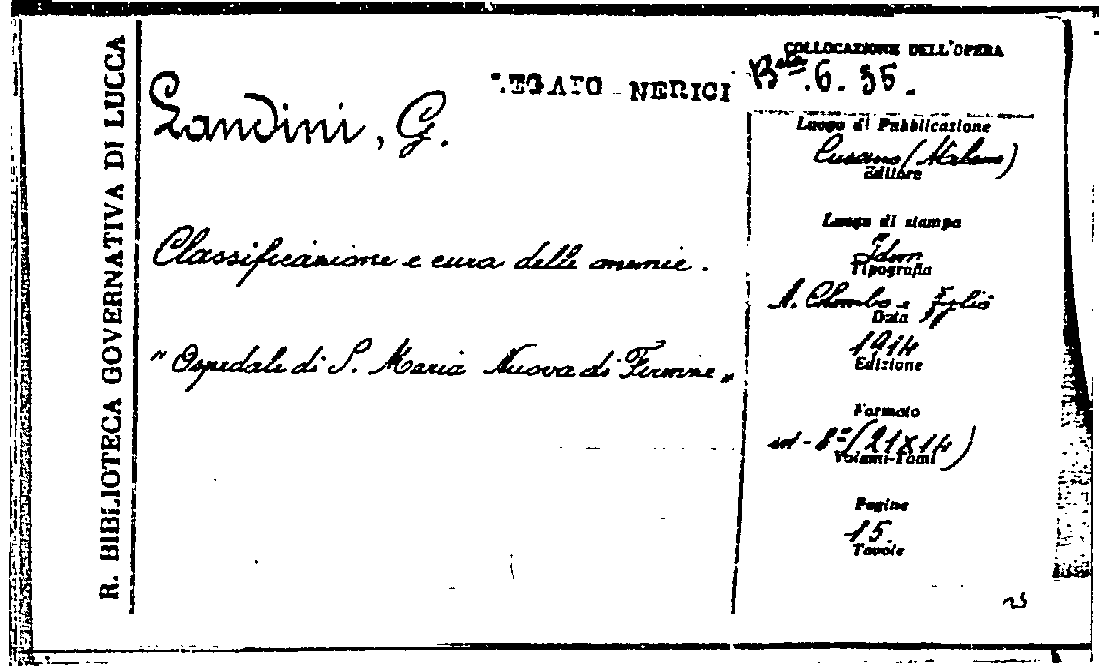 R. BIBLIOTECA GOVERNATIVA DI LUCCA
LEGATO - NERICI
Landini, G.
Classificazione e cura delle anemie.
"Ospedale di S. Maria Nuova di Firenze"
COLLOCAZIONE DELL'OPERA
B.ta 6. 35.
Luogo di Pubblicazione
Cusano (Milano)
Editore
Luogo di stampa
Idem
Tipografia
A. Colombo e Figlio
Data
1914
Edizione
Formato
in - 8º (21x14)
Volumi-Tomi
Pagine
15.
Tavole